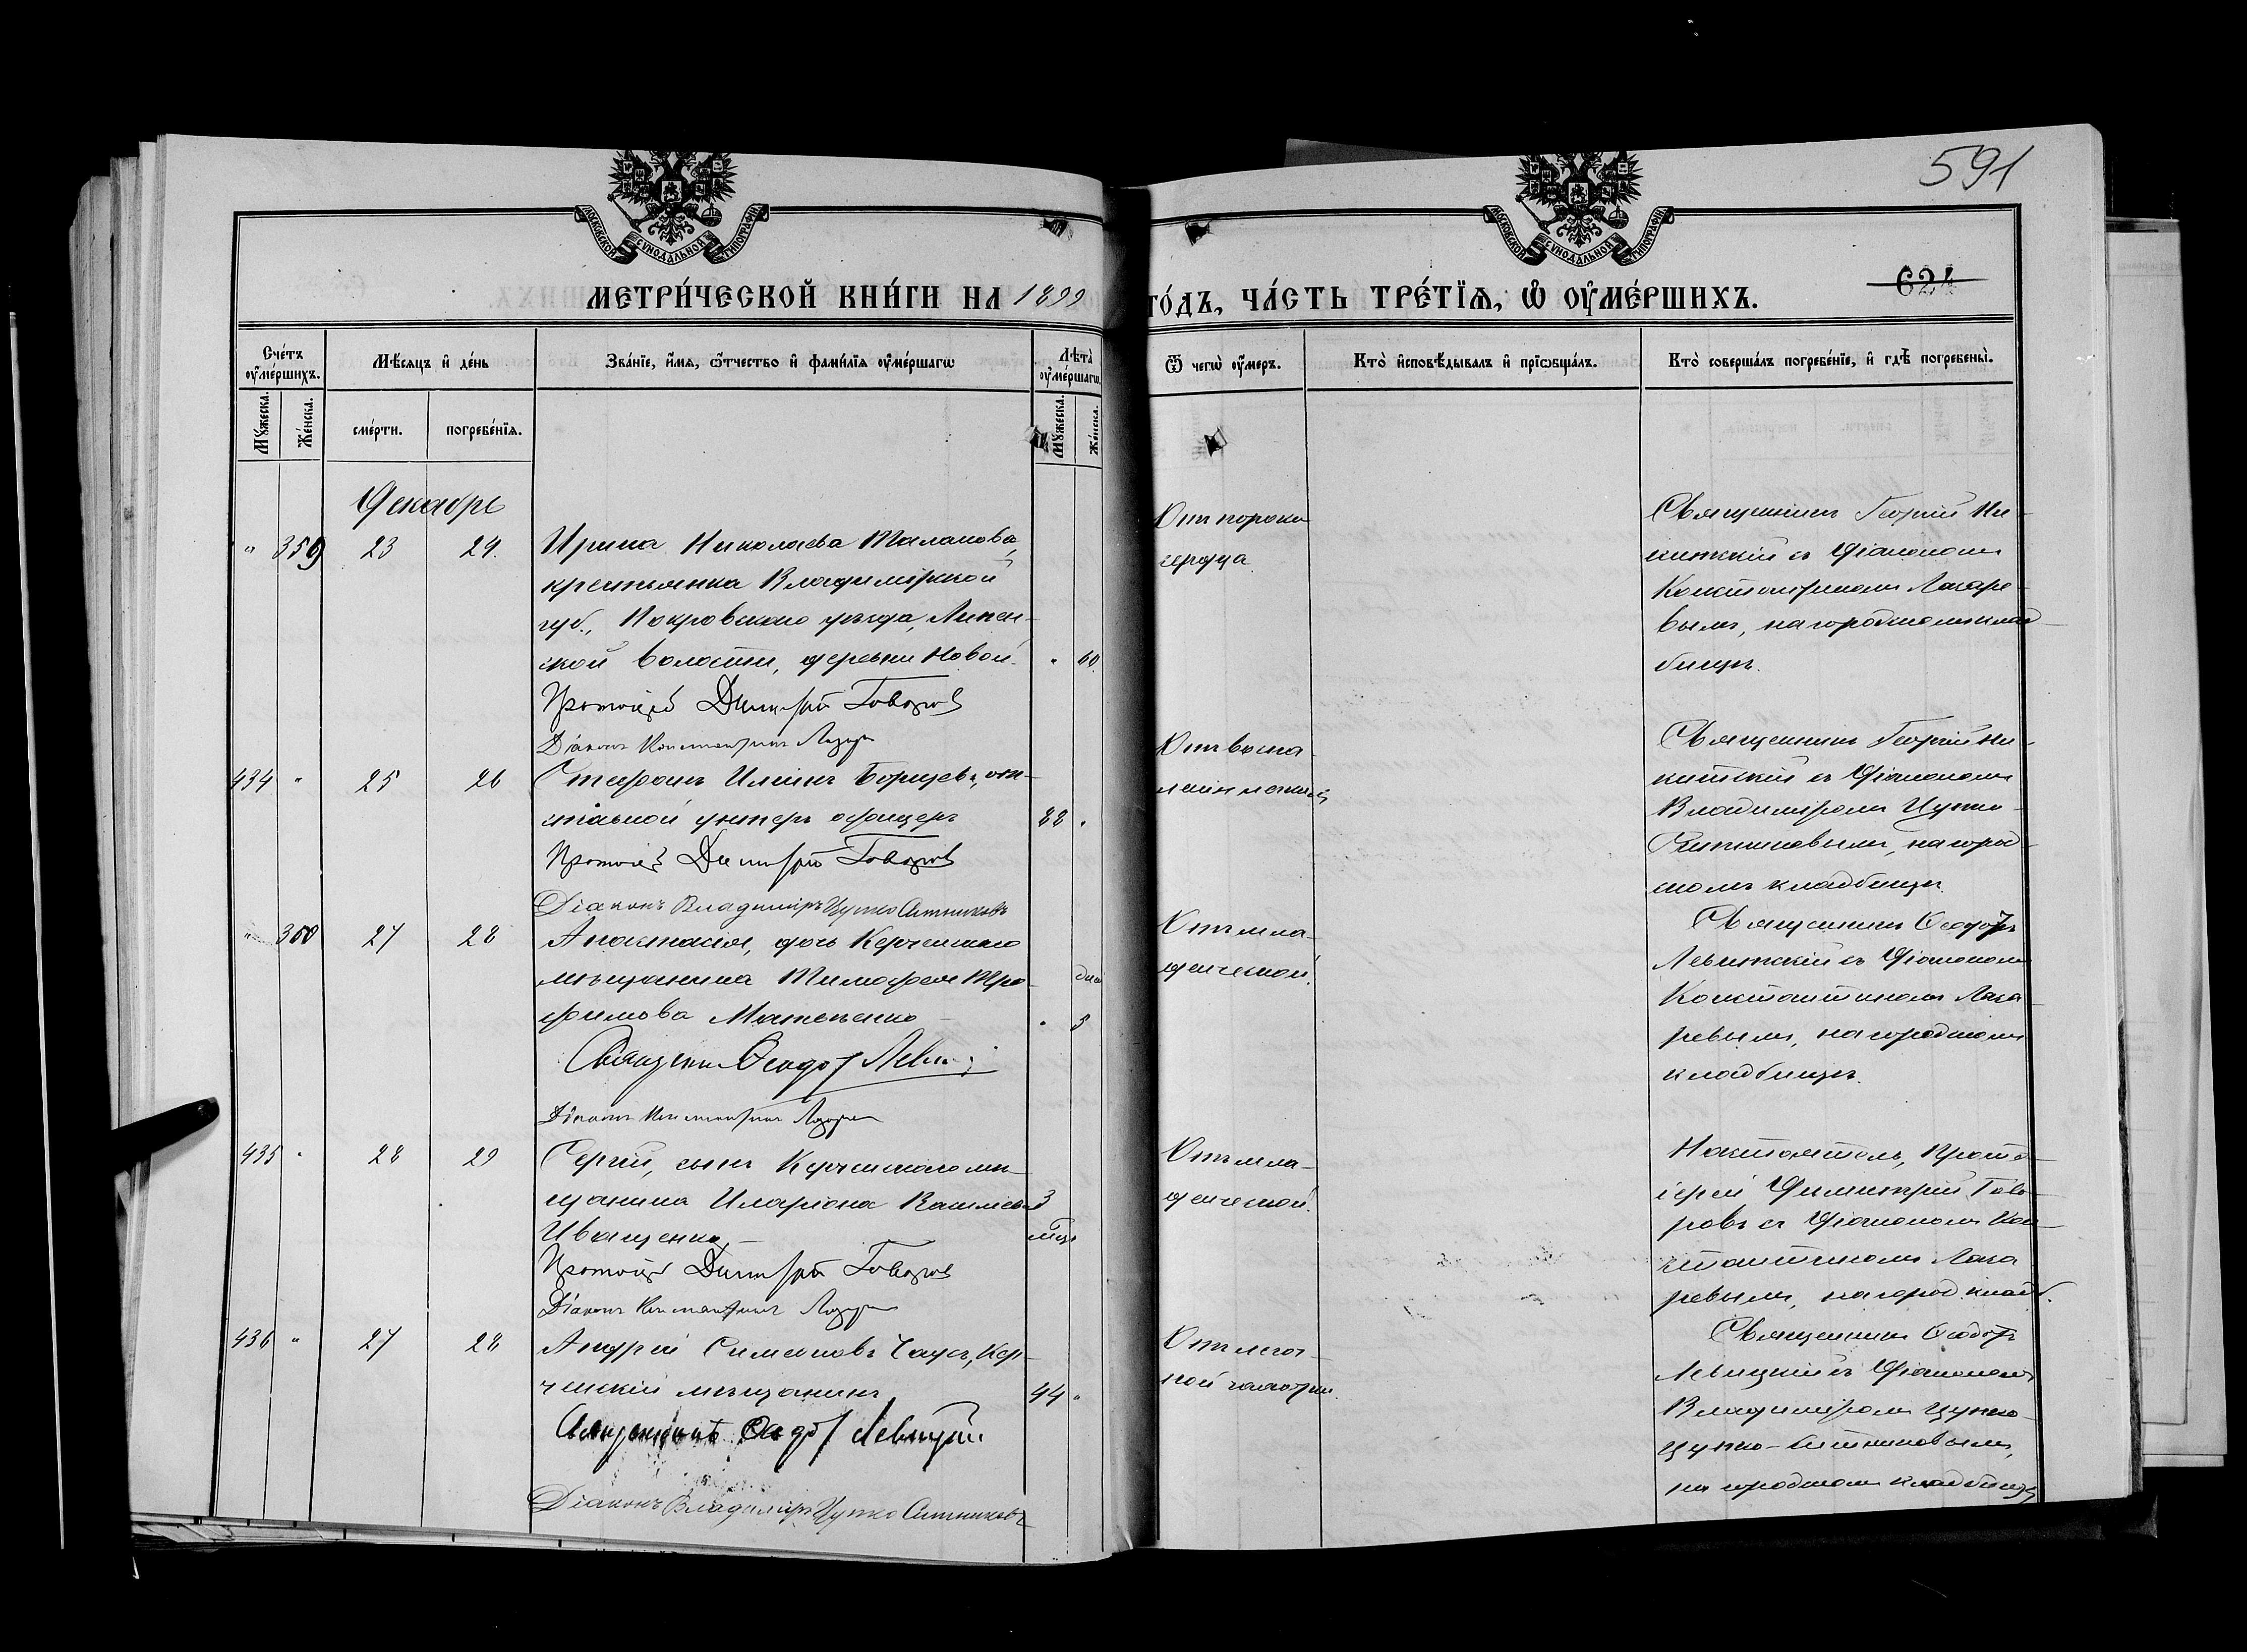 МОСКОВСКОЙ СѴНОДАЛЬНОЙ ТИПОГРАФІИ
МОСКОВСКОЙ СѴНОДАЛЬНОЙ ТИПОГРАФІИ
591
624
МЕТРИ́ЧЕСКОЙ КНИ́ГИ НА 1899
ГО́ДЪ, ЧА́СТЬ ТРЕ́ТЇѦ, Ѽ ОУ҆МЕ́РШИХЪ.
Сче́тъ оу҆ме́ршихъ.
Мѣ́сѧцъ и҆ де́нь
Зва́нїе, и҆́мѧ, ѻ҆́тчество и҆ фами́лїѧ оу҆ме́ршагѡ
Лѣ́та оу҆ме́ршагѡ.
Ѿ чегѡ̀ оу҆́меръ.
Кто̀ и҆сповѣ́дывалъ и҆ прїѡбща́лъ.
Кто̀ соверша́лъ погребе́нїе, и҆ гдѣ̀ погребены̀.
Мꙋ́жеска.
Же́нска.
сме́рти.
погребе́нїѧ.
Мꙋ́жеска.
Же́нска.
Декабрь
" 359 23 24.
Ирина Николаева Таланова,
крестьянка Владимірской
губ., Покровскаго уѣзда, Липен-
ской волости, деревни Новой.
" 60.
Протоіерей Димитрій Говоров
Діаконъ Константинъ Лазарев
Отъ порока
сердца
Священникъ Георгій Ни-
китскій съ Діакономъ
Константиномъ Лазаре-
вымъ, на городскомъ клад-
бищѣ.
434 " 25 26
Стефанъ Ильинъ Борщевъ, от-
ставной унтеръ офицеръ
88 "
Протоіерей Димитрій Говоров
Діаконъ Владиміръ Цупко Ситниковъ
Отъ воспа-
Священникъ Георгій Ни-
китскій съ Діакономъ
Владиміромъ Цупко-
Ситниковымъ, на город-
скомъ кладбищѣ.
" 360 27 28
Анастасія, дочь Керченскаго
мѣщанина Тимофея Тро-
фимова Матвенко
дней
" 3
Священникъ Ѳеодоръ Левицкій
Діаконъ Константинъ Лазарев
Отъ мла-
денческой.
Священникъ Ѳеодоръ
Левитскій съ Діакономъ
Константиномъ Лаза-
ревымъ, на городскомъ
кладбищѣ.
435 " 28 29
Сергій, сынъ Керченскаго мѣ-
щанина Иларіона Васильева
Иващенко
3
мѣс.
Протоіерей Димитрій Говоров
Діаконъ Константинъ Лазарев
Отъ мла-
денческой.
Настоятель, Прото-
іерей Димитрій Гово-
ровъ съ Діакономъ Кон-
стантиномъ Лаза
ревымъ, на город. кладб.
436 " 27 28
Андрей Симеоновъ Чаусъ, Кер-
ченскій мѣщанинъ
44 "
Священникъ Ѳеодоръ Левицкій
Діаконъ Владиміръ Цупко Ситниковъ
Отъ легоч-
ной чахотки.
Священникъ Ѳеодоръ
Левицкій съ Діакономъ
Владиміромъ Цупко-
Цупко-Ситниковымъ,
на городскомъ кладбищѣ